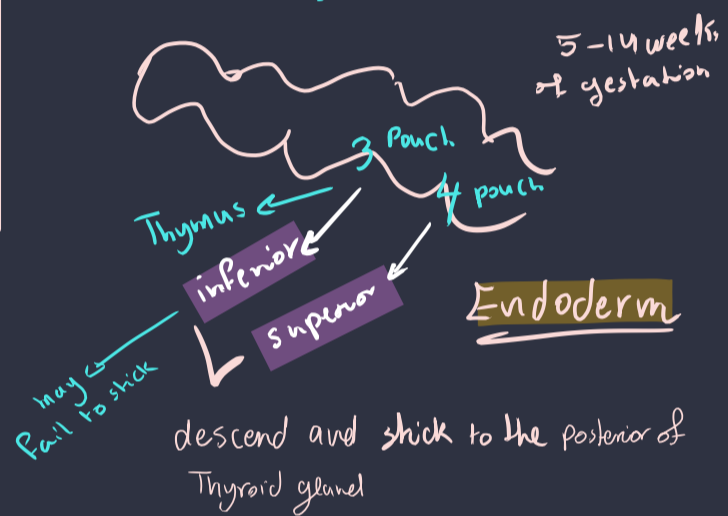 5-14 weeks
of gestation
3 Pouch
4 pouch
Thymus
inferior
superior
Endoderm
may
fail to stick
descend and stick to the posterior of
Thyroid gland